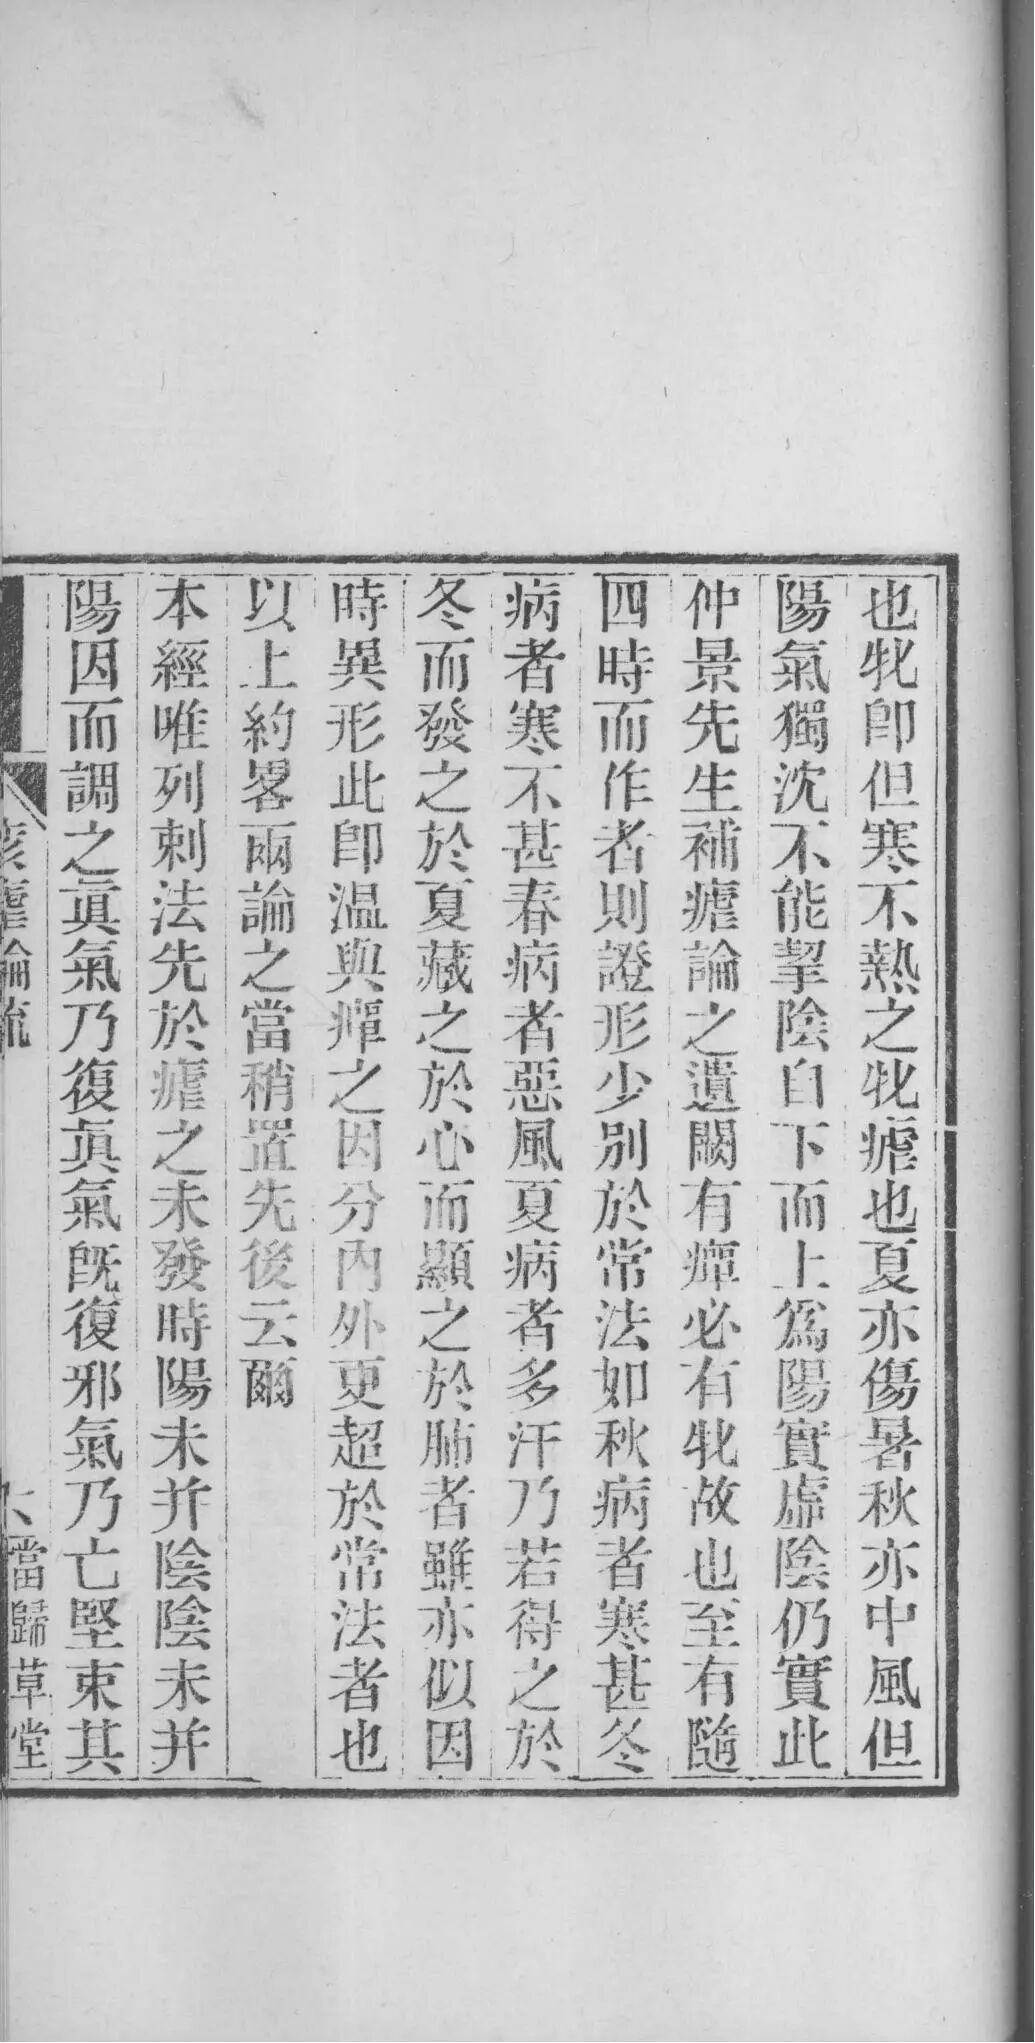 也牝卽但寒不熱之牝瘧也夏亦傷暑秋亦中風但
陽氣獨沈不能挈陰自下而上爲陽實虛陰仍實此
仲景先生補瘧論之遺闕有癉必有牝故也至有隨
四時而作者則證形少別於常法如秋病者寒甚冬
病者寒不甚春病者惡風夏病者多汗乃若得之於
冬而發之於夏藏之於心而顯之於肺者雖亦似因
時異形此卽温與癉之因分內外更超於常法者也
以上約畧兩論之當稍置先後云爾
本經唯列刺法先於瘧之未發時陽未并陰陰未并
陽因而調之眞氣乃復眞氣旣復邪氣乃亡堅束其
瘧論疏
六當歸草堂